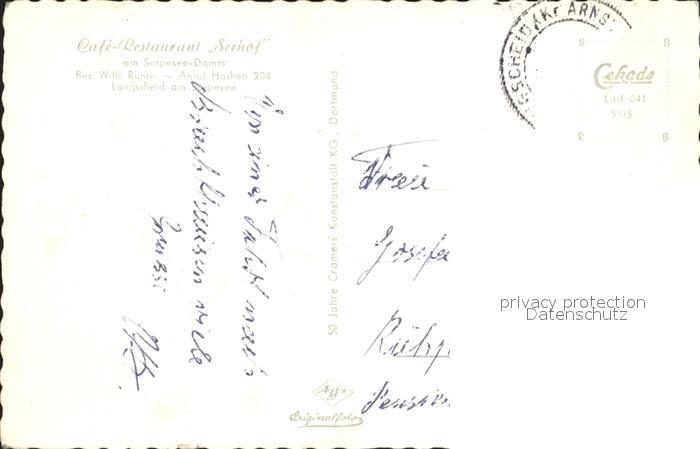 Café-Restaurant „Seehof"
am Sorpesee-Damm
Bes. Willi Runte — Anruf Hachen 204
Langscheid am Sorpesee
Von einer Fahrt nach
viele
Grüsse
50 Jahre Cramers Kunstanstalt KG., Dortmund
Agfa
Originalfoto
GSCHEID (Kr ARNS
B B
Cekade
Lad 041
55/5
R B
Frau
Josefi
Pension
privacy protection
Datenschutz